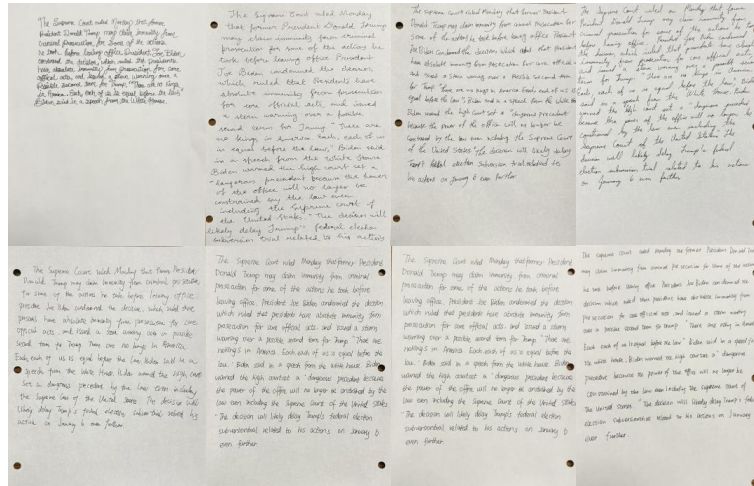 The Supreme Court ruled Monday that former
President Donald Trump may claim immunity from
criminal prosecution for some of the actions
he took before leaving office. President Joe Biden
condemned the decision, which ruled that presidents
have absolute immunity from prosecution for core
official acts, and issued a stern warning over a
possible second term for Trump. "There are no kings
in America. Each of us is equal before the law,"
Biden said in a speech from the White House.
The Supreme Court ruled Monday
that former President Donald Trump
may claim immunity from criminal
prosecution for some of the actions he
took before leaving office. President
Joe Biden condemned the decision,
which ruled that Presidents have
absolute immunity from prosecution
for core official acts, and issued
a stern warning over a possible
second term for Trump. "There are
no kings in America. Each, each of us
is equal before the law," Biden said
in a speech from the White House
Biden warned the high court set a
dangerous precedent because the power
of the office will no longer be
constrained by the law even
including the Supreme Court of
the United States." The decision will
likely delay Trump's federal election
subversion trial related to his actions
The Supreme Court ruled Monday that former President
Donald Trump may claim immunity from criminal Prosecution for
Some of the actions he took before leaving office. President
Joe Biden Condemned the decision which ruled that President
have absolute immunity from Prosecution for core official acts
and issued a stern warning over a Possible Second term
for Trump "There are no kings in America. Each of us is
equal before the law", Biden said in a speech from the White House
Biden warned the high court set a "dangerous Precedent
because the Power of the office will no longer be
Constrained by the law even including the Supreme Court
of the United States" The decision will likely delay
Trump's federal election subversion trial related to
his actions on January 6 even further
The Supreme Court ruled on Monday that former
President Donald Trump may claim immunity from
criminal prosecution for some of the actions he took
before leaving office. President Joe Biden condemned
the decision, which ruled that presidents have absolute
immunity from prosecution for core official acts,
and issued a stern warning over a possible second
term for Trump. "There are no kings in America.
Each, each of us is equal before the law," Biden
said in a speech from the White House. Biden
warned the high court set a "dangerous precedent
because the power of the office will no longer be
constrained by the law even including the
Supreme Court of the United States." The
decision will likely delay Trump's federal
election subversion trial related to his actions
on January 6 even further
The Supreme Court ruled Monday that former President
Donald Trump may claim immunity from criminal prosecution
for some of the actions he took before leaving office
president Joe Biden condemned the decision, which ruled that
persons have absolute immunity from prosecution for core
official acts, and issued a stern warning over a possible
second term for Trump. There are no kings in America.
Each, each of us is equal before the law Biden said in a
speech from the White House. Biden warned the high court
set a dangerous precedent by the law even including
the Supreme Court of the United States. The decision will
likely delay Trump's federal election subversion related his
actions on January 6 even further
The Supreme Court ruled Monday that former President
Donald Trump may claim immunity from criminal
prosecution for some of the actions he took before
leaving office. President Joe Biden condemned the decision
which ruled that presidents have absolute immunity from
prosecution for core official acts, and issued a stern
warning over a possible second term for Trump "There are
no kings in America. Each of each of us is equal before the
law." Biden said in a speech from the White House. Biden
warned the high court set a "dangerous precedent because
the power of the office will no longer be constrained by the
law even including the Supreme Court of the United States
"The decision will likely delay Trump's federal election
subversion trial related to his actions on January 6
even further
The Supreme Court ruled Monday that former President
Donald Trump may claim immunity from criminal
prosecution for some of the actions he took before
leaving office. President Joe Biden condemned the decision
which ruled that presidents have absolute immunity from
prosecution for core official acts, and issued a stern
warning over a possible second term for Trump "There are
no kings in America. Each of each of us is equal before the
law." Biden said in a speech from the White House. Biden
warned the high court set a "dangerous precedent because
the power of the office will no longer be constrained by the
law even including the Supreme Court of the United States
"The decision will likely delay Trump's federal election
subversion trial related to his actions on January 6
even further
The supreme court ruled Monday the former President Donald
may claim immunity from criminal prosecution for some of the actions
he took before leaving office. President Joe Biden condemned the
decision which ruled that presidents have absolute immunity from
prosecution for core official acts, and issued a stern warning
over a possible second term for trump "There are no king in America
Each of us is equal before the law" Biden said in a speech from
the White house. Biden warned the high court set a "dangerous
precedent because the power of the office will no longer be
constrained by the law even including the supreme court of
the United States. "The decision will likely delay Trump's federal
election subversion trial related to his actions on January 6
even further.